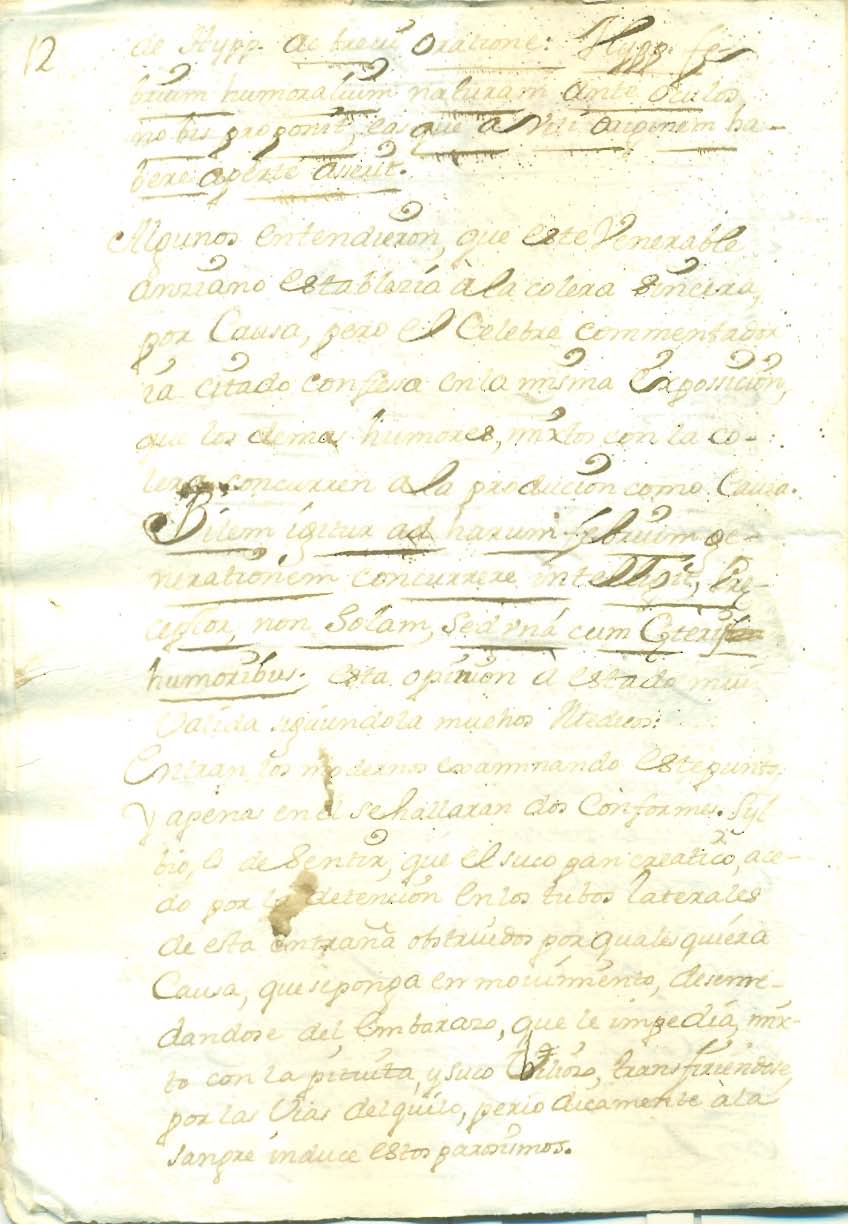 12
de Hypp. ac breui oratione: Hypp. fe-
brium humoralium naturam ante oculos
nobis proponit, easque a bili originem ha-
bere aperte aserit.
Algunos entendieron, que este Venerable
anziano establezia à la colera sincera,
por Causa, pero el Celebre commentador
ia citado confiesa en la misma Exposicion,
que los demas humores, mixtos con la co-
lera concurren a la producion como Causa.
Bilem igitur ad harum febrium ge-
nerationem concurrere intellegit, Pre-
ceptor, non Solam, Sed vná cum Ceteris
humoribus. esta opinion à estado mui
Valida siguiendola muchos Medicos:
Entran los modernos examinando este punto,
y apenas en el se hallaran dos Conformes. Syl
bio, es de Sentir, que el suco pancreatico, ace-
do por la detención en los tubos laterales
de esta entraña obstruidos por qualesquiera
Causa, que se ponga en mouimiento, desenre-
dandose del Embarazo, que le impedia, mix-
to con la pituita, y suco bilioso, transfiriendose,
por las Vias del quilo, periodicamente à la
sangre induce estos paroxismos.